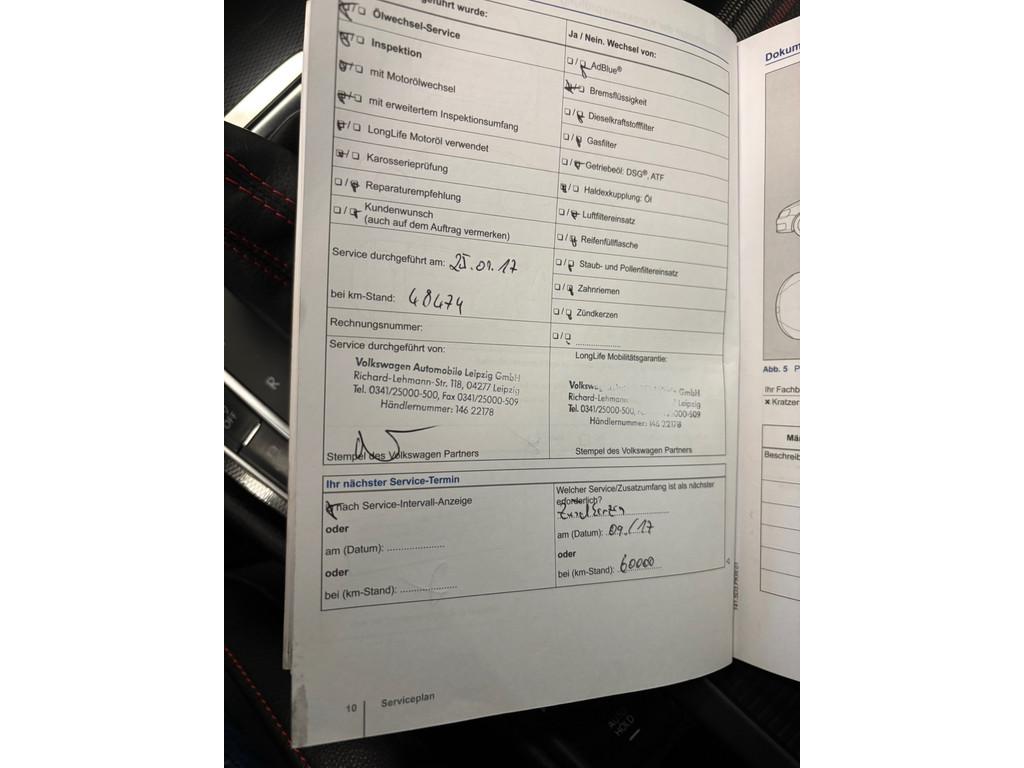 geführt wurde:
Ölwechsel-Service
Inspektion
mit Motorölwechsel
mit erweitertem Inspektionsumfang
LongLife Motoröl verwendet
Karosserieprüfung
Reparaturempfehlung
Kundenwunsch
(auch auf dem Auftrag vermerken)
Service durchgeführt am: 25.01.17
bei km-Stand: 48474
Rechnungsnummer:
Service durchgeführt von:
Volkswagen Automobile Leipzig GmbH
Richard-Lehmann-Str. 118, 04277 Leipzig
Tel. 0341/25000-500, Fax 0341/25000-509
Händlernummer: 146 22178
Stempel des Volkswagen Partners
Ja / Nein. Wechsel von:
AdBlue®
Bremsflüssigkeit
Dieselkraftstofffilter
Gasfilter
Getriebeöl: DSG®, ATF
Haldexkupplung: Öl
Luftfiltereinsatz
Reifenfüllflasche
Staub- und Pollenfiltereinsatz
Zahnriemen
Zündkerzen
LongLife Mobilitätsgarantie:
GmbH
Richard-Lehmann Leipzig
Tel. 0341/25000-500, 000-509
Händlernummer: 146 22178
Stempel des Volkswagen Partners
Ihr nächster Service-Termin
nach Service-Intervall-Anzeige
oder
am (Datum):
oder
bei (km-Stand):
Welcher Service/Zusatzumfang ist als nächster
erforderlich?
Zündkerzen
am (Datum): 09./17
oder
bei (km-Stand): 60000
10 Serviceplan
Dokum
Abb. 5 P
Ihr Fachb
× Kratzer
Mä
Beschreib
R
OFF
AUTO
HOLD